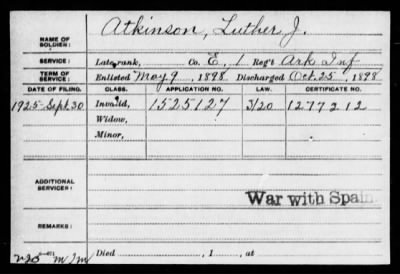 NAME OF SOLDIER: Atkinson, Luther J.
SERVICE: Late rank, Co. E, 1 Reg't Ark Inf
TERM OF SERVICE: Enlisted May 9, 1898 Discharged Oct. 25, 1898
DATE OF FILING. CLASS. APPLICATION NO. LAW. CERTIFICATE NO.
1925 Sept 30 Invalid, 1525127 3/20 1277212
Widow,
Minor,
ADDITIONAL SERVICES:
War with Spain
REMARKS:
Died , 1 , at